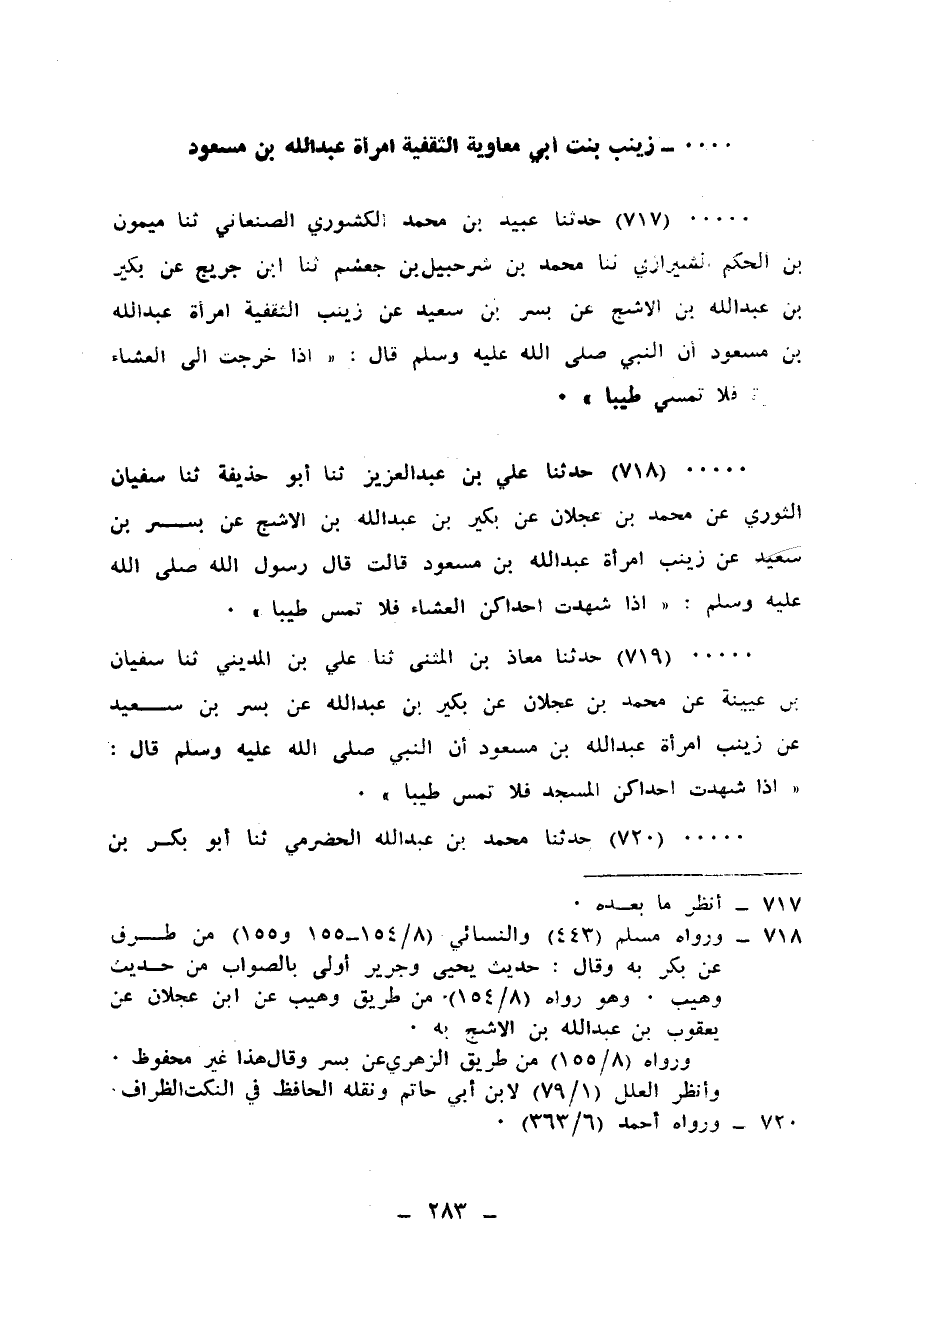 ٠٠٠٠ ــ زينب بنت أبي معاوية الثقفية امرأة عبدالله بن مسعود
٠٠٠٠٠ (٧١٧) حدثنا عبيد بن محمد الكشوري الصنعاني ثنا ميمون
بن الحكم الشيرازي ثنا محمد بن شرحبيل بن جعشم ثنا ابن جريج عن بكير
بن عبدالله بن الاشج عن بسر بن سعيد عن زينب الثقفية امرأة عبدالله
بن مسعود أن النبي صلى الله عليه وسلم قال : « اذا خرجت الى العشاء
فلا تمسي طيبا » ٠
٠٠٠٠٠ (٧١٨) حدثنا علي بن عبدالعزيز ثنا أبو حذيفة ثنا سفيان
الثوري عن محمد بن عجلان عن بكير بن عبدالله بن الاشج عن بســـر بن
سعيد عن زينب امرأة عبدالله بن مسعود قالت قال رسول الله صلى الله
عليه وسلم : « اذا شهدت احداكن العشاء فلا تمس طيبا » ٠
٠٠٠٠٠ (٧١٩) حدثنا معاذ بن المثنى ثنا علي بن المديني ثنا سفيان
بن عيينة عن محمد بن عجلان عن بكير بن عبدالله عن بسر بن ســـعيد
عن زينب امرأة عبدالله بن مسعود أن النبي صلى الله عليه وسلم قال :
« اذا شهدت احداكن المسجد فلا تمس طيبا » ٠
٠٠٠٠٠ (٧٢٠) حدثنا محمد بن عبدالله الحضرمي ثنا أبو بكـر بن
٧١٧ ــ أنظر ما بعـده ٠
٧١٨ ــ ورواه مسلم (٤٤٣) والنسائي (١٥٤/٨ــ١٥٥ و١٥٥) من طـــرف
عن بكر به وقال : حديث يحيى وجرير أولى بالصواب من حـديث
وهيب ٠ وهو رواه (١٥٤/٨)٠ من طريق وهيب عن ابن عجلان عن
يعقوب بن عبدالله بن الاشج به ٠
ورواه (١٥٥/٨) من طريق الزهري عن بسر وقال هذا غير محفوظ ٠
وأنظر العلل (٧٩/١) لابن أبي حاتم ونقله الحافظ في النكت الظراف٠
٧٢٠ ــ ورواه أحمد (٣٦٣/٦) ٠
ــ ٢٨٣ ــ